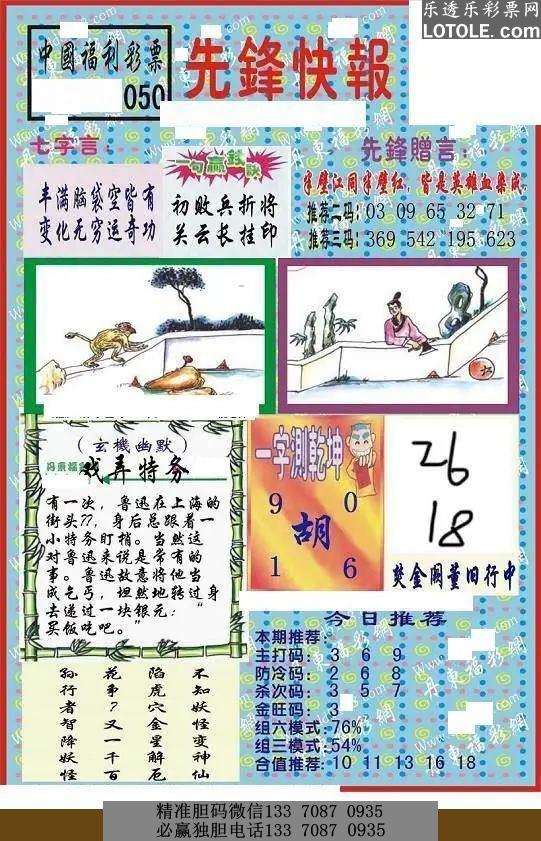 乐透乐彩票网
LOTOLE.COM
中國福利彩票
050
先鋒快報
七字言：
丰满脑袋空皆有
变化无穷运奇功
一句赢錢訣
初败兵折将
关云长挂印
先鋒贈言：
半壁江同半壁红，皆是英雄血染成。
推荐二码：03 09 65 32 71
推荐三码：369 542 195 623
（玄機幽默）
戏弄特务
有一次，鲁迅在上海的
街头??，身后总跟着一
小特务盯梢。当然这
对鲁迅来说是常有的
事。鲁迅故意将他当
成乞丐，坦然地转过身
去递过一块银元：“
买饭吃吧。”
一字測乾坤
9 0
胡
1 6
26
18
焚金阙董旧行中
今日推荐
本期推荐：
主打码：3 6 9
防冷码：2 6 8
杀次码：3 5 7
金旺码：3
组六模式：76%
组三模式：54%
合值推荐：10 11 13 16 18
不知妖怪变神仙
陷虎穴金星解厄
花事？又一千百
孙行者智降妖怪
精准胆码微信133 7087 0935
必赢独胆电话133 7087 0935